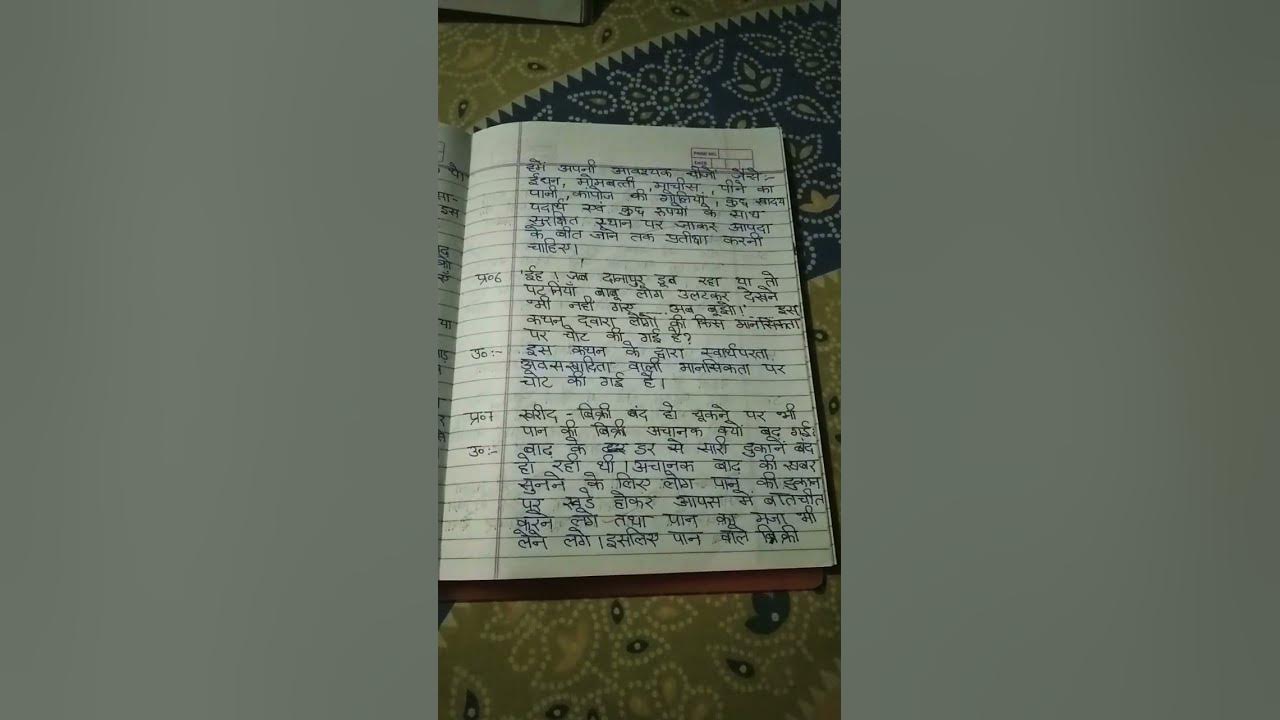 हमे अपनी आवश्यक चीजों जैसे:-
ईंधन, मोमबत्ती, माचीस, पीने का
पानी, कांपोज की गोलियाँ, कुछ खादय
पदार्थ एवं कुछ रुपयों के साथ
सुरक्षित स्थान पर जाकर आपदा
के बीत जाने तक प्रतीक्षा करनी
चाहिए।
प्र०6 'ईह । जब दानापुर डूब रहा था तो
पटनियाँ बाबू लोग उलटकर देखने
भी नही गए ... अब बूझो।' इस
कथन द्वारा लोगों की किस मानसिकता
पर चोट की गई है?
उ०:- इस कथन के द्वारा स्वार्थपरता
अवसरवादिता वाली मानसिकता पर
चोट की गई है।
प्र०7 खरीद - बिक्री बंद हो चूकने पर भी
पान की बिक्री अचानक क्यों बढ़ गई?
उ०:- बाढ़ के डर से सारी दुकानें बंद
हो रही थी। अचानक बाढ़ की खबर
सुनने के लिए लोग पान की दुकान
पर खड़े होकर आपस में बातचीत
करने लगे तथा पान का मजा भी
लेने लगे। इसलिए पान वाले बिक्री